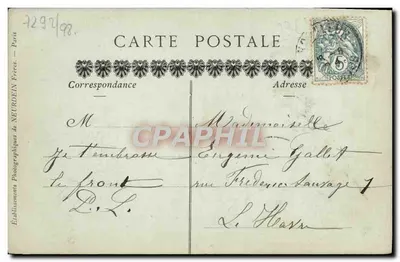 7292/92
CARTE POSTALE
Correspondance
Adresse
Etablissements Photographiques de NEURDEIN Frères - Paris
M
je t'embrasse
le front
P. L.
Mademoiselle
Eugénie Gallet
rue Frédéric Sauvage 7
Le Havre
CPAPHIL
5